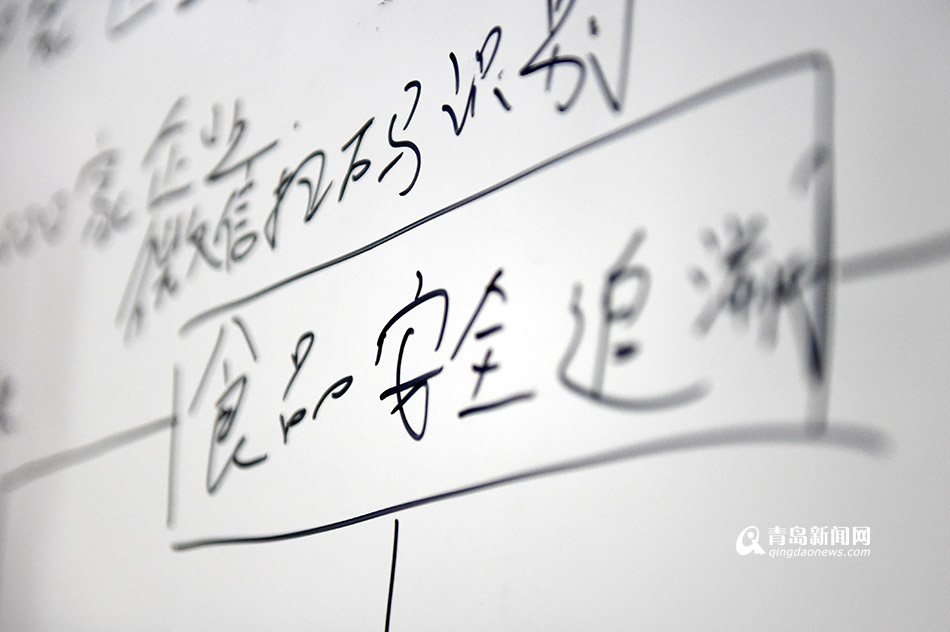 家
家企业
微信扫码识别
食品安全追溯
青岛新闻网
qingdaonews.com